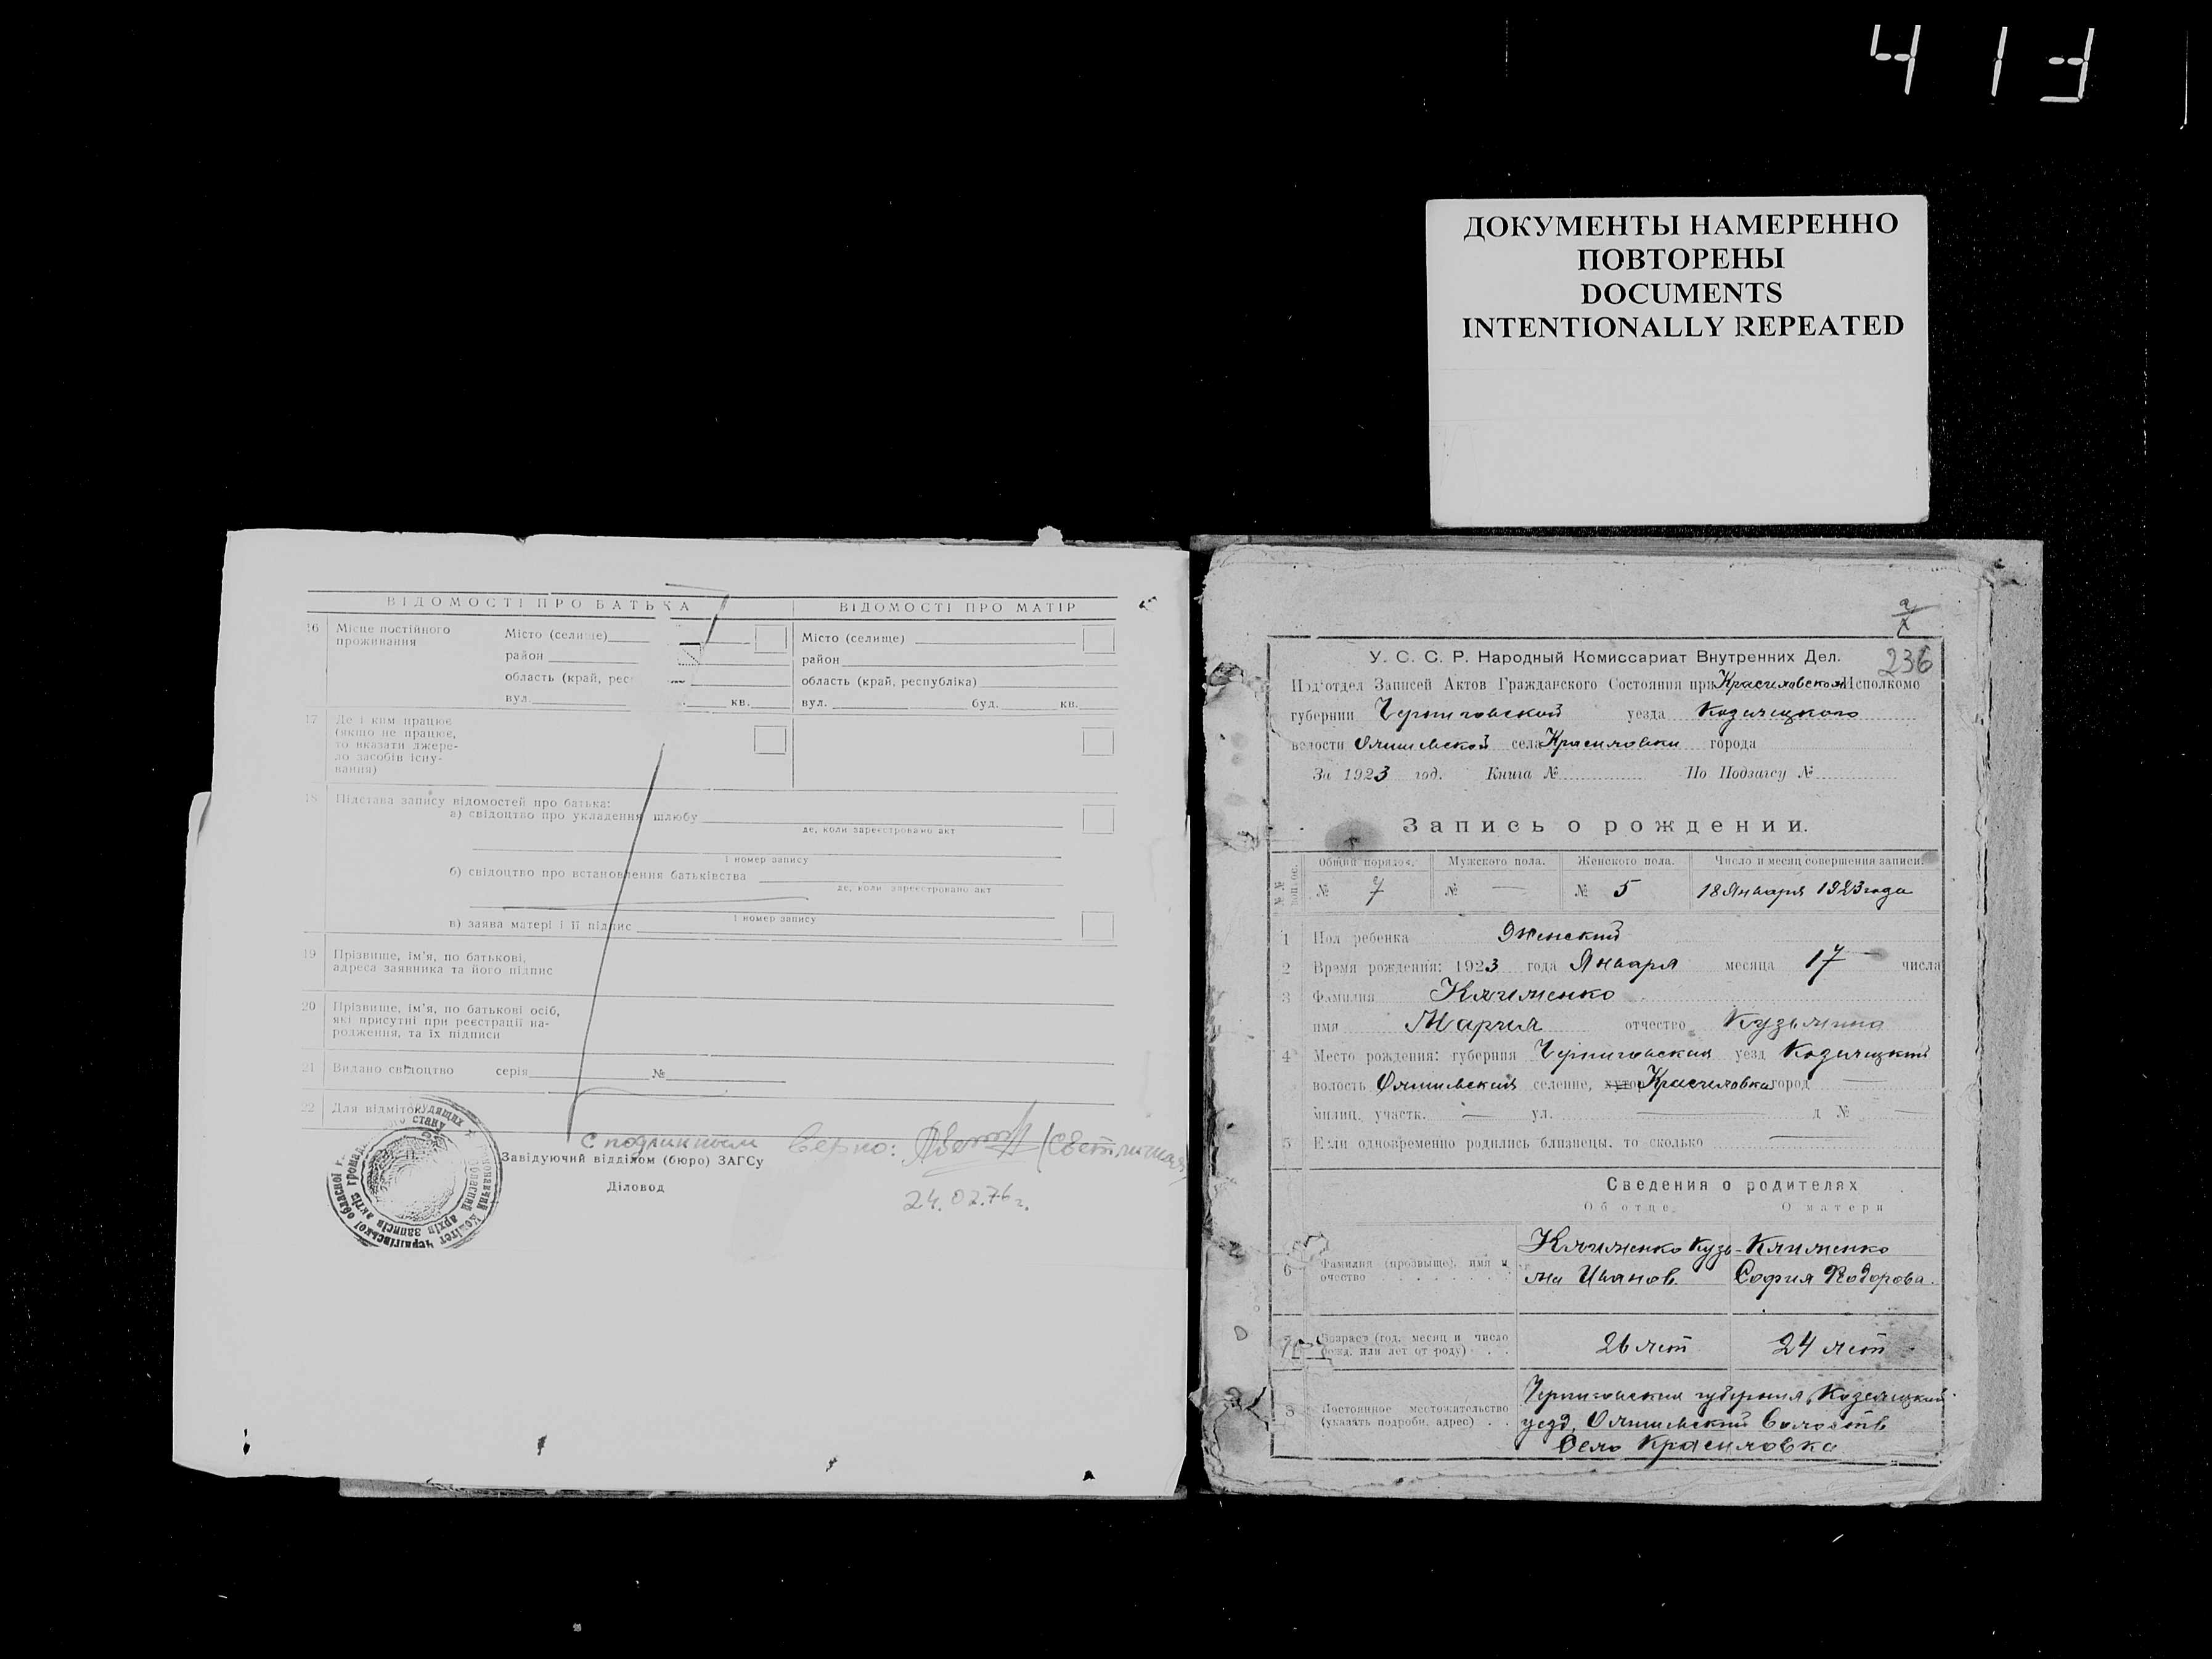 413
ДОКУМЕНТЫ НАМЕРЕННО
ПОВТОРЕНЫ
DOCUMENTS
INTENTIONALLY REPEATED
ВІДОМОСТІ ПРО БАТЬКА ВІДОМОСТІ ПРО МАТІР
16 Місце постійного проживання
Місто (селище) Місто (селище)
район район
область (край, рес область (край, республіка)
вул. кв. вул. буд. кв.
17 Де і ким працює
(якщо не працює,
то вказати джере-
ло засобів існу-
вання)
18 Підстава запису відомостей про батька:
а) свідоцтво про укладення шлюбу
де, коли зареєстровано акт
і номер запису
б) свідоцтво про встановлення батьківства
де, коли зареєстровано акт
і номер запису
в) заява матері і її підпис
19 Прізвище, ім'я, по батькові,
адреса заявника та його підпис
20 Прізвище, ім'я, по батькові осіб,
які присутні при реєстрації на-
родження, та їх підписи
21 Видано свідоцтво серія №
22 Для відміток
С подлинным верно:
Завідуючий відділом (бюро) ЗАГСу
Діловод
24.02.76 г.
236
У. С. С. Р. Народный Комиссариат Внутренних Дел.
Под'отдел Записей Актов Гражданского Состояния при Красиловском Исполкоме
губернии Черниговской уезда Козелецкого
волости Олишевской села Красиловки города
За 1923 год. Книга № По Подзагсу №
Запись о рождении.
Общий порядок. Мужского пола. Женского пола. Число и месяц совершения записи.
№ 7 № — № 5 18 Января 1923 года
1 Пол ребенка Женский
2 Время рождения: 1923 года Января месяца 17 числа
3 Фамилия Клименко
имя Мария отчество Кузьмина
4 Место рождения: губерния Черниговская уезд Козелецкий
волость Олишевская селение, хутор Красиловка город —
милиц. участк. — ул. — д № —
5 Если одновременно родились близнецы, то сколько —
Сведения о родителях
Об отце. О матери
6 Фамилия (прозвище), имя и очество
Клименко Кузь- Клименко
ма Иванов. София Федорова.
Возраст (год, месяц и число
рожд. или лет от роду) 26 лет 24 лет
8 Постоянное местожательство
(указать подробн. адрес)
Черниговская губерния, Козелецкий
уезд, Олишевский волость
Село Красиловка